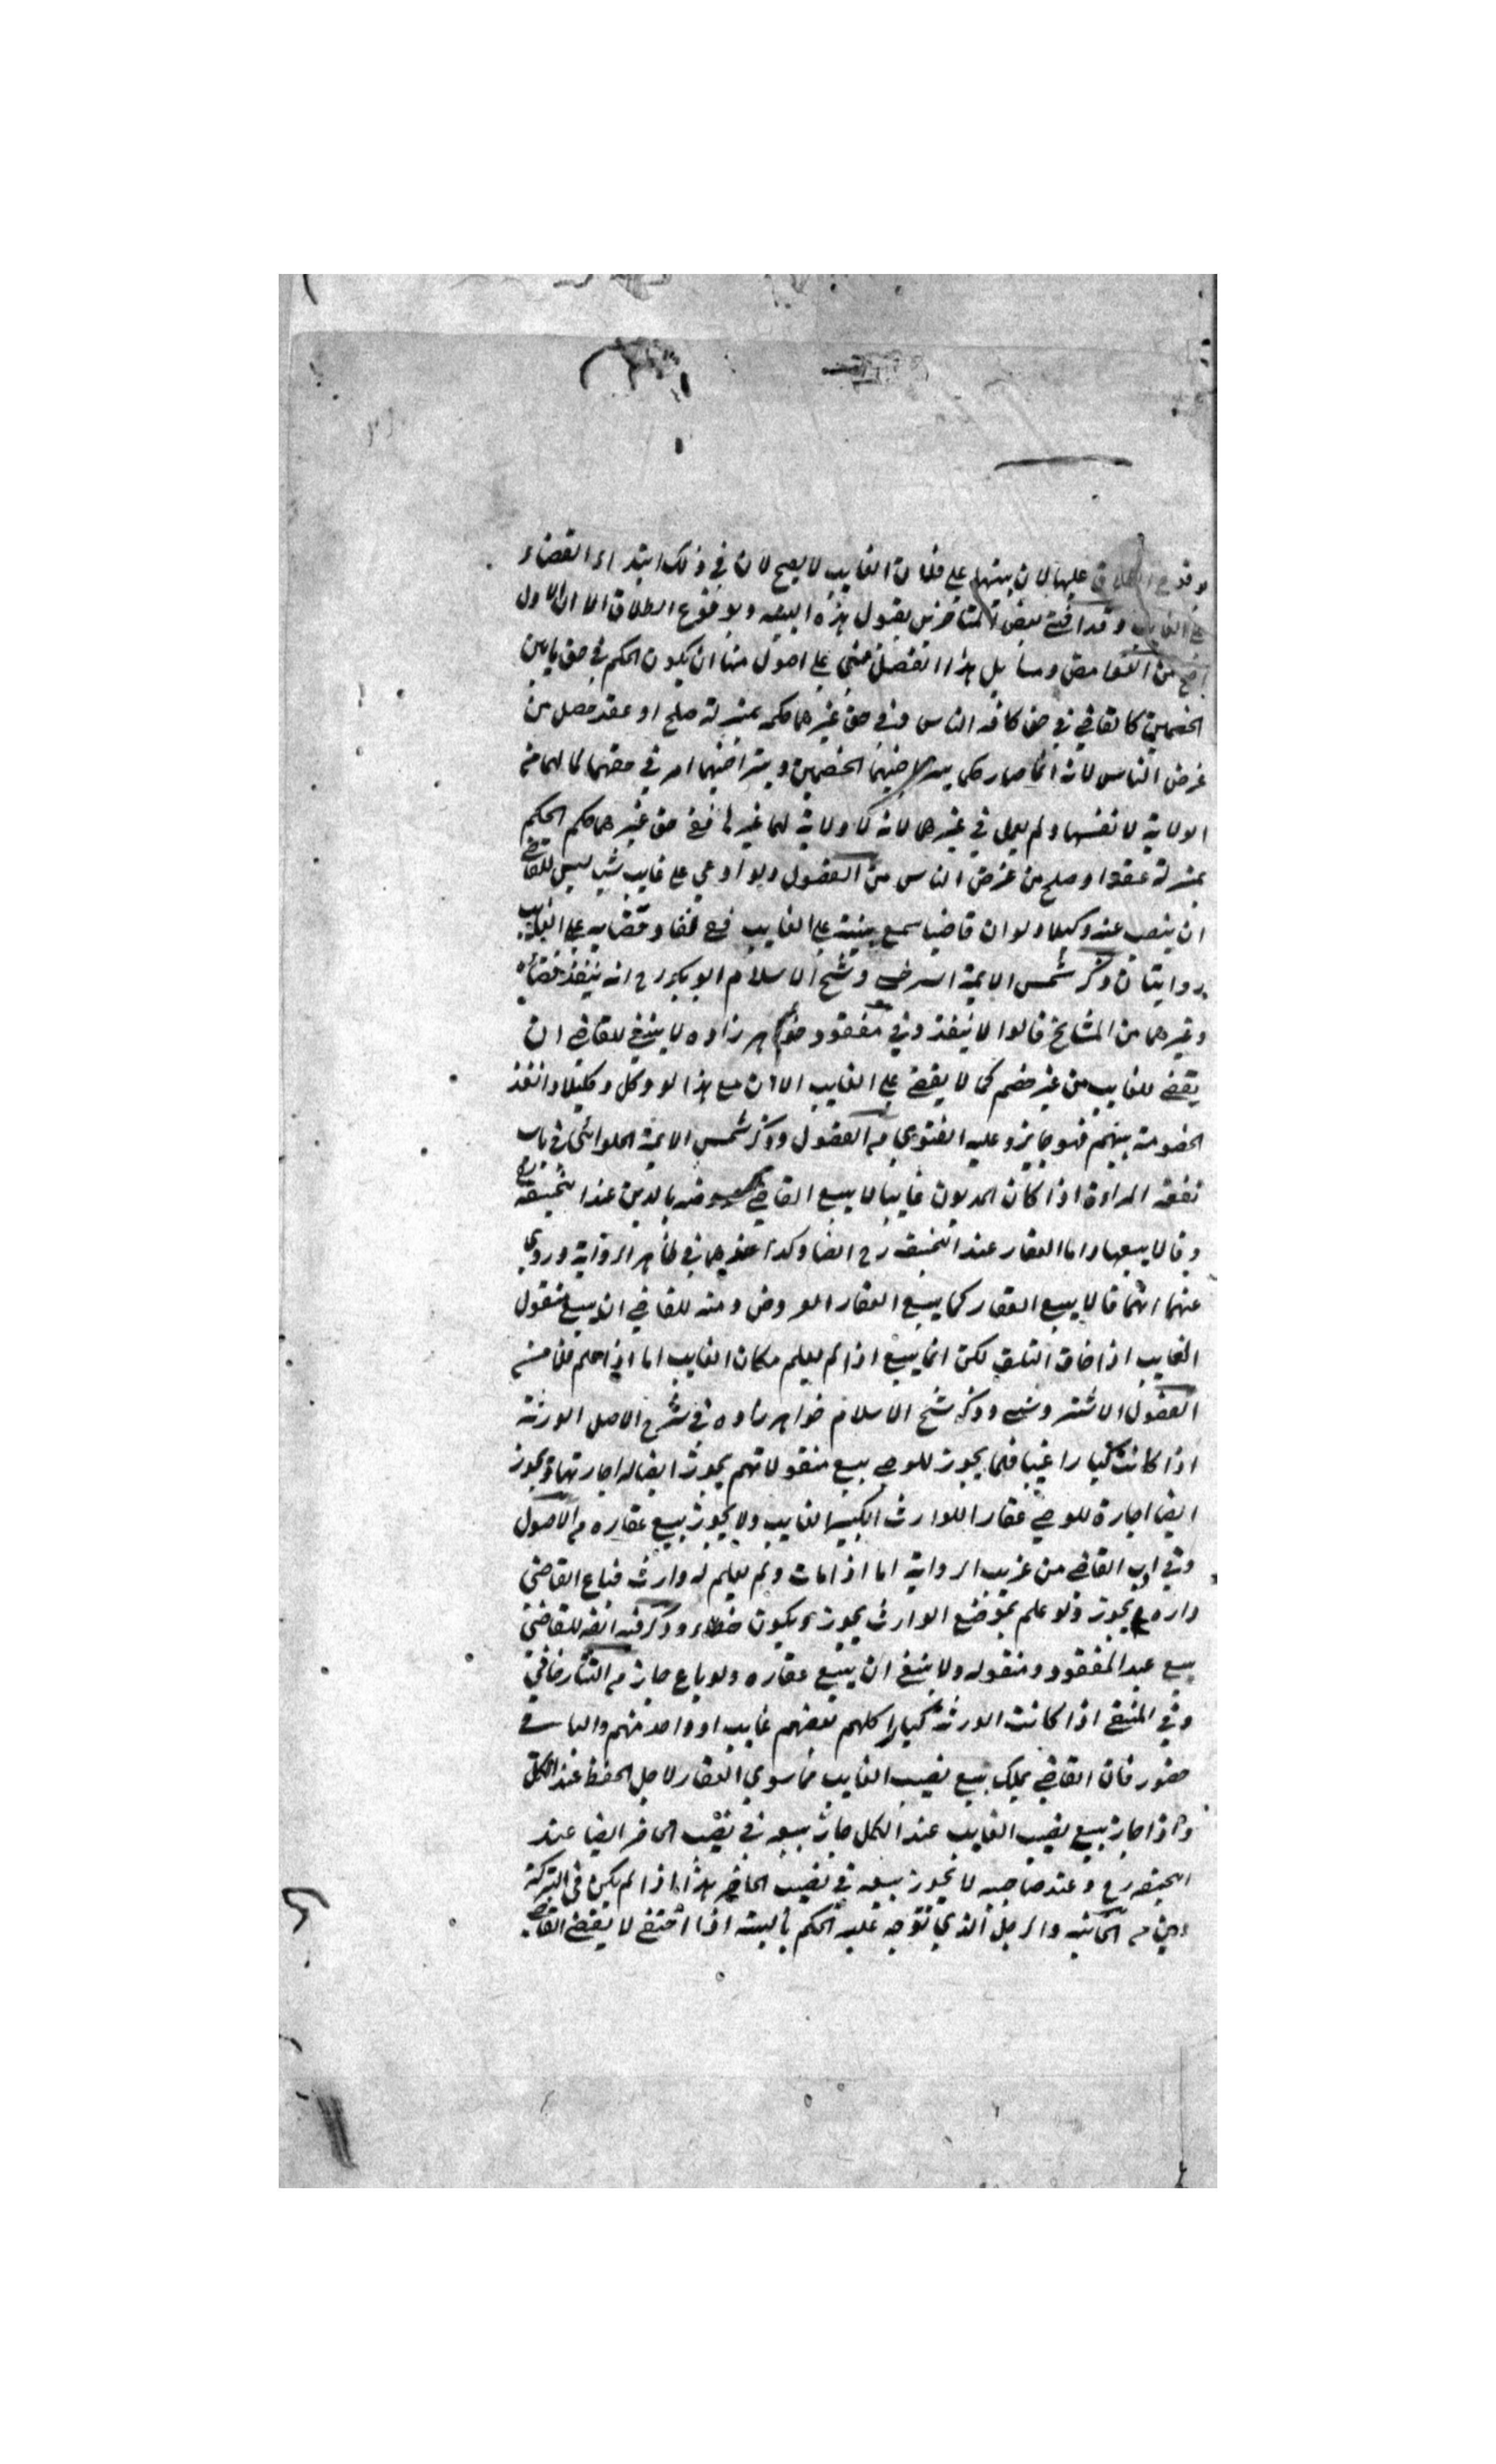 وقوع الطلاق عليها لان بينتها على فلان الغايب لا يصح لان في ذلك ابتداء القضاء
على الغايب وقد افتى بعض المتاخرين بقبول هذه البينه وبوقوع الطلاق الا ان الاول
اصح من الغوامض ومسايل هذا الفصل مبني على اصول منها ان يكون الحكم في حق هاذين
الخصمين كالقاضي في حق كافه الناس وفي حق غيرهما حكمه بمنزلة صلح او عقد حصل من
عرض الناس لانه انما صار حكما الخصمين وبتراضيهما امر في حقهما لما لهما من
الولاية لا نفسهما ولم يعمل في غيرهما لانه لا ولاية لهما غير ففي حق غيرهما حكم الحكم
بمنزلة عقد او صلح من عرض الناس من الفصول ولو ادعى على غايب شيا ليس للقاضي
ان ينصب عنه وكيلا ولو ان قاضيا سمع بينة على الغايب ففي نفاذ قضايه على الغايب
روايتان ذكر شمس الايمة السرخسي وشيخ الاسلام ابو بكر رح انه ينفذ قضاؤه
وغيرهما من المشايخ قالوا لا ينفذ وفي مفقود خواهر زاده لا ينبغي للقاضي ان
يقضي للغايب من غير خصم كما لا يقضي على الغايب الا ان مع هذا لو وكل وكيلا وانفذ
الخصومة بينهم فهو جايز وعليه الفتوى م الفصول وذكر شمس الايمة الحلوائي في باب
نفقة المراءة اذا كان المديون غايبا لا يبيع القاضي عروضه بالدين عند ابيحنيفة رح
وقالا يبيعها واما العقار عند ابيحنيفة رح ايضا وكذا عندهما في ظاهر الرواية وروي
عنهما انهما قالا يبيع العقار كما يبيع العقار العروض ومنه للقاضي ان يبيع منقول
الغايب اذا خاف التلف لكن انما يبيع اذا لم يعلم مكان الغايب اما اذا علم فلا من
الفصول الاشتروشني وذكر شيخ الاسلام خواهر زاده في شرح الاصل الورثة
اذا كانت كبارا غيبا فكما يجوز للوصي بيع منقولاتهم يجوز ايضا له اجارتها ويجوز
ايضا اجارة للوصي عقار اللوارث الكبير الغايب ولا يجوز بيع عقاره م الاصول
وفي ادب القاضي من غريب الرواية اما اذا مات ولم يعلم له وارث فباع القاضي
داره يجوز ولو علم بموضع الوارث يجوز ويكون خطاء وذكر فيه انه للقاضي
بيع عبد المفقود ومنقوله ولا ينبغي ان يبيع عقاره ولو باع جاز م التتارخاني
وفي المنتقى اذا كانت الورثة كبارا كلهم بعضهم غايب او واحد منهم والباقي
حضور فان القاضي يملك بيع نصيب الغايب مما سوى العقار لاجل الحفظ عند الكل
واذا جاز بيع نصيب الغايب عند الكل جاز بيعه في نصيب الحاضر ايضا عند
ابيحنيفه رح وعند صاحبيه لا يجوز بيعه في نصيب الحاضر هذا اذا لم يكن في التركة
دين م الخانيه والرجل الذي توجه عليه الحكم بالبينه اذا اختفى لا يقضي القاضي